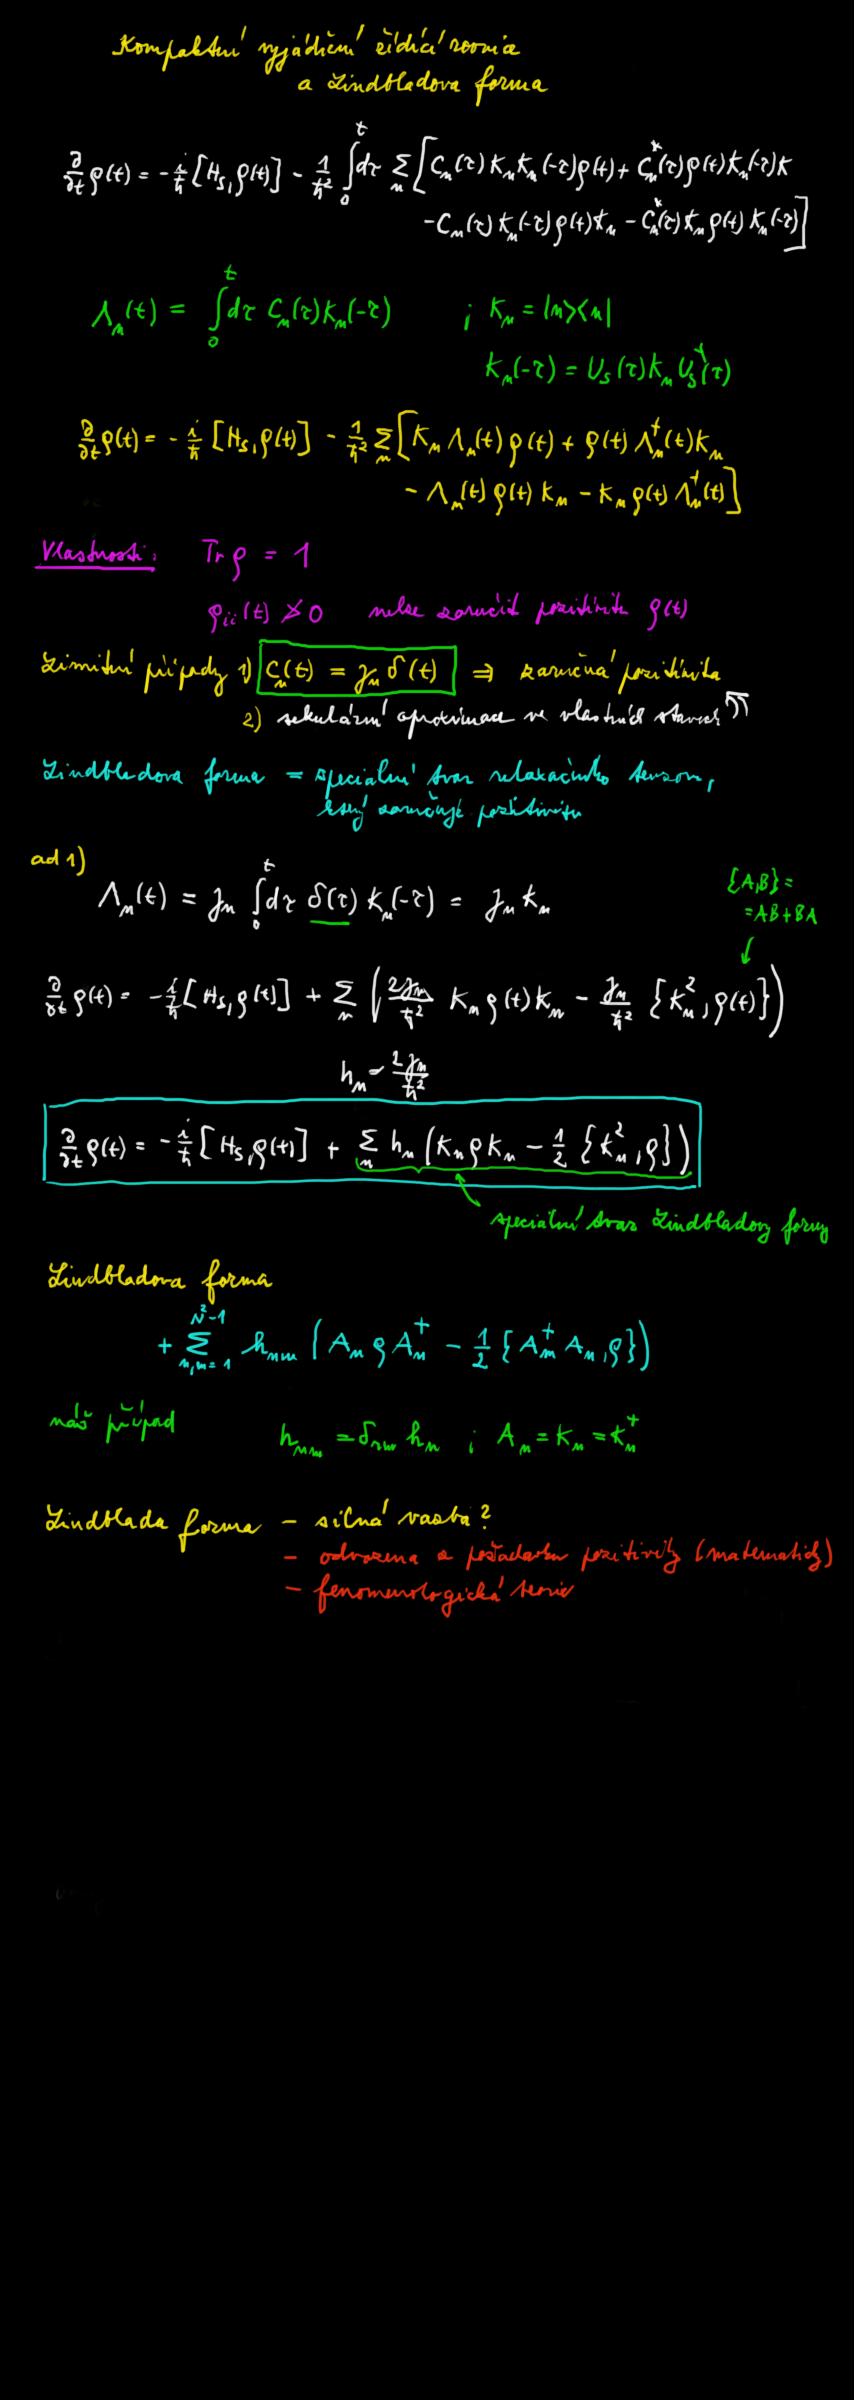 Kompaktní vyjádření řídící rovnice
a Lindbladova forma
∂/∂t ρ(t) = -i/ħ [H_S, ρ(t)] - 1/ħ² ∫₀ᵗ dτ Σ_n [C_n(τ) K_n K_n(-τ)ρ(t) + C_n^*(τ)ρ(t)K_n(-τ)K
-C_n(τ) K_n(-τ)ρ(t)K_n - C_n^*(τ) K_n ρ(t) K_n(-τ)]
Λ_n(t) = ∫₀ᵗ dτ C_n(τ) K_n(-τ) ; K_n = |n><n|
K_n(-τ) = U_S(τ) K_n U_S^+(τ)
∂/∂t ρ(t) = -i/ħ [H_S, ρ(t)] - 1/ħ² Σ_n [K_n Λ_n(t) ρ(t) + ρ(t) Λ_n^+(t) K_n
- Λ_n(t) ρ(t) K_n - K_n ρ(t) Λ_n^+(t)]
Vlastnosti: Tr ρ = 1
ρ_ii(t) ≯ 0 nelze zaručit pozitivitu ρ(t)
Limitní případy 1) C_n(t) = γ_n δ(t) ⇒ zaručená pozitivita
2) sekulární aproximace ve vlastních stavech
Lindbledova forma = speciální tvar relaxačního tenzoru,
který zaručuje pozitivitu
ad 1)
Λ_n(t) = γ_n ∫₀ᵗ dτ δ(τ) K_n(-τ) = γ_n K_n
{A,B} =
= AB + BA
∂/∂t ρ(t) = -i/ħ [H_S, ρ(t)] + Σ_n (2γ_n/ħ² K_n ρ(t) K_n - γ_n/ħ² {K_n², ρ(t)})
h_n = 2γ_n/ħ²
∂/∂t ρ(t) = -i/ħ [H_S, ρ(t)] + Σ_n h_n (K_n ρ K_n - 1/2 {K_n², ρ})
speciální tvar Lindbladovy formy
Lindbladova forma
+ Σ_{n,m=1}^{N²-1} h_nm (A_n ρ A_m^+ - 1/2 {A_m^+ A_n, ρ})
náš případ h_nm = δ_nm h_n ; A_n = K_n = K_n^+
Lindblada forma - silná vazba?
- odvozena z požadavku pozitivity (matematicky)
- fenomenologická teorie